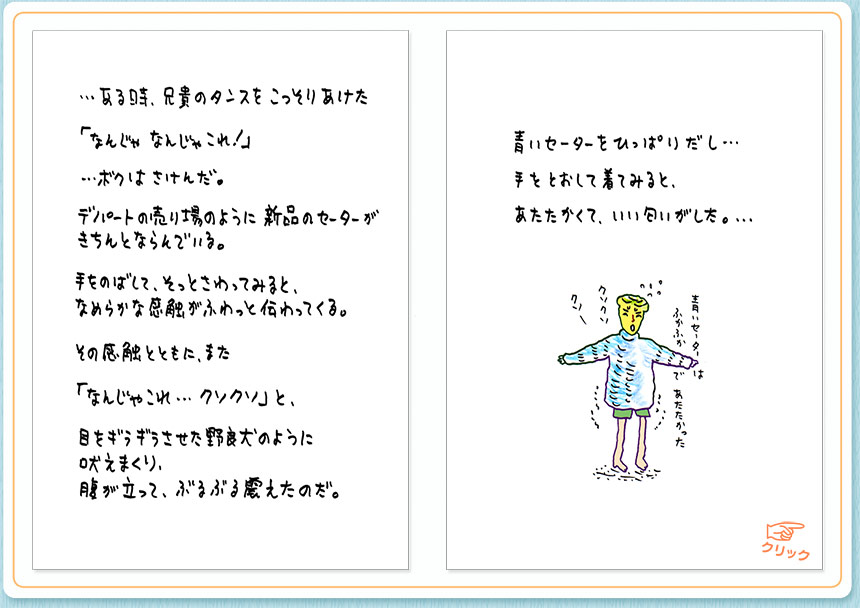 …ある時、兄貴のタンスをこっそりあけた
「なんじゃ なんじゃこれ！」
…ボクはさけんだ。
デパートの売り場のように 新品のセーターが
きちんとならんでいる。
手をのばして、そっとさわってみると、
なめらかな感触がふわっと伝わってくる。
その感触とともに、また
「なんじゃこれ… クソクソ」と、
目をギラギラさせた野良犬のように
吠えまくり、
腹が立って、ぶるぶる震えたのだ。
青いセーターをひっぱりだし…
手をとおして着てみると、
あたたかくて、いい匂いがした。…
クソー
クソクソ
青いセーターは
ふかふかで あたたかった
クリック